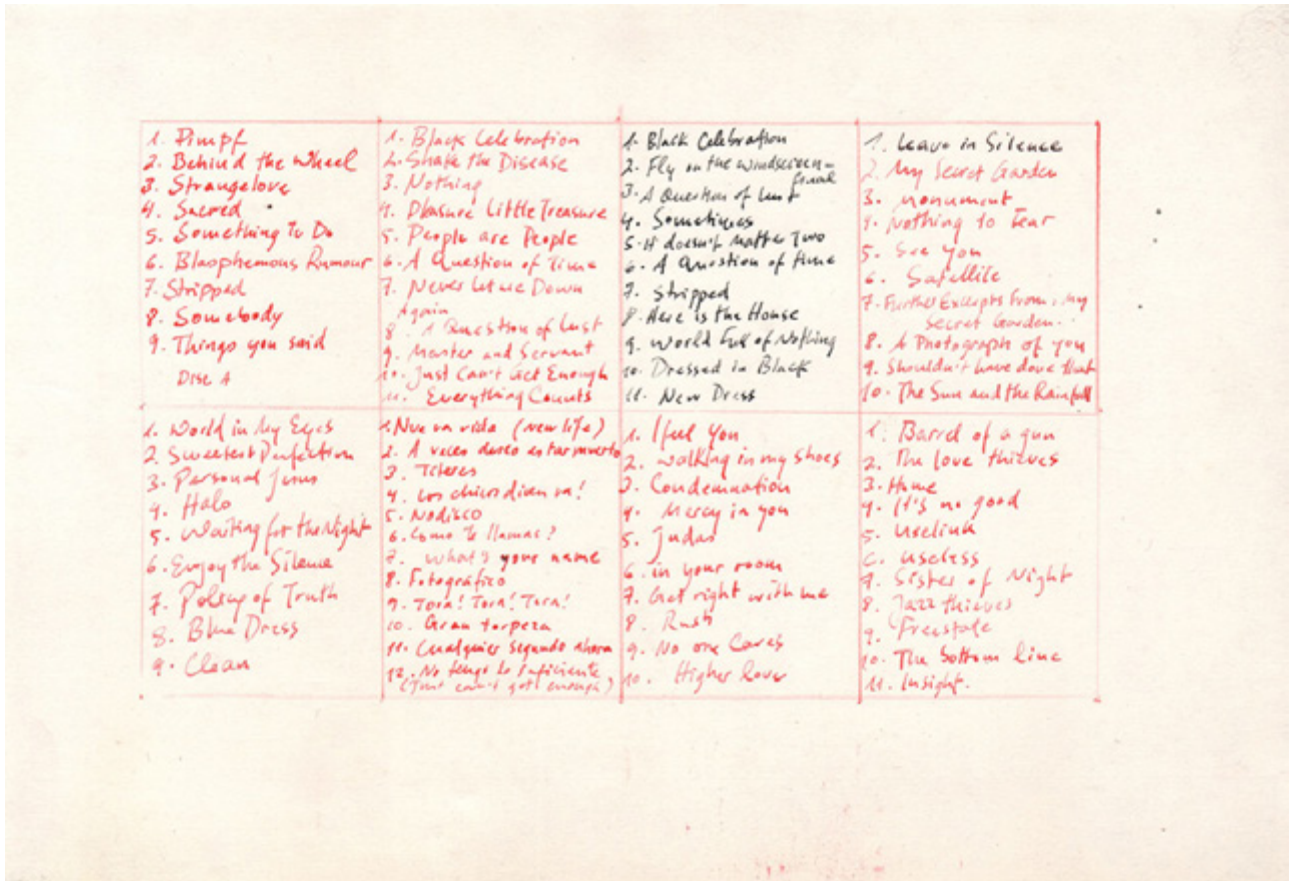 1. Pimpf
2. Behind the wheel
3. Strangelove
4. Sacred
5. Something to Do
6. Blasphemous Rumour
7. Stripped
8. Somebody
9. Things you said
Disc A
1. Black Celebration
2. Shake the Disease
3. Nothing
4. Pleasure Little Treasure
5. People are People
6. A Question of Time
7. Never let me Down
Again
8. A Question of Lust
9. Master and Servant
10. Just Can't Get Enough
11. Everything Counts
1. Black Celebration
2. Fly on the windscreen-
final
3. A Question of Lust
4. Sometimes
5. It doesn't matter Two
6. A Question of time
7. Stripped
8. Here is the House
9. World Full of Nothing
10. Dressed in Black
11. New Dress
1. Leave in Silence
2. My Secret Garden
3. monument
4. Nothing to Fear
5. See you
6. Satellite
7. Further Excerpts From: My
Secret Garden.
8. A Photograph of you
9. Shouldn't have done that
10. The Sun and the Rainfall
1. World in My Eyes
2. Sweetest Perfection
3. Personal Jesus
4. Halo
5. Waiting for the Night
6. Enjoy the Silence
7. Policy of Truth
8. Blue Dress
9. Clean
1. Nueva vida (new life)
2. A veces deseo estar muerto
3. Titeres
4. Los chicos dicen va!
5. Nodisco
6. Como te llamas?
7. What's your name
8. Fotográfico
9. Tora! Tora! Tora!
10. Gran torpeza
11. Cualquier segundo ahora
12. No tengo lo suficiente
(Just can't get enough)
1. I feel You
2. Walking in my shoes
3. Condemnation
4. Mercy in you
5. Judas
6. in your room
7. Get right with me
8. Rush
9. No one Cares
10. Higher love
1. Barrel of a gun
2. The love thieves
3. Home
4. It's no good
5. Uselink
6. useless
7. Sister of Night
8. Jazz thieves
9. Freestate
10. The bottom line
11. Insight.